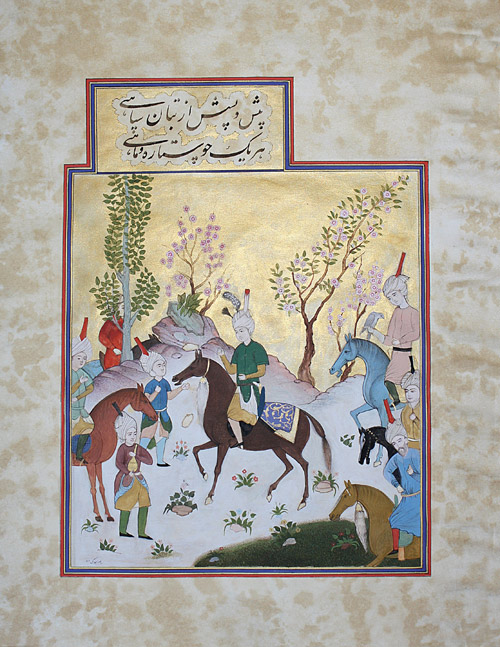 پیش و پسش از بتان سپاهی
هر یک چو ستاره و ماهی